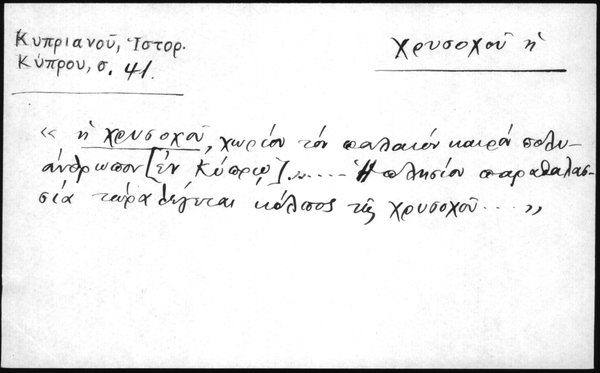 Κυπριανοῦ, Ἱστορ.
Κύπρου, σ. 41.
Χρυσοχοῦ ἡ
« ἡ χρυσοχοῦ, χωρίον τὸν παλαιὸν καιρὸν πολυ-
άνθρωπον [ἐν Κύπρῳ]..... Ἡ πλησίον παραθαλασ-
σία τώρα λέγεται κόλπος τῆς Χρυσοχοῦ.... »